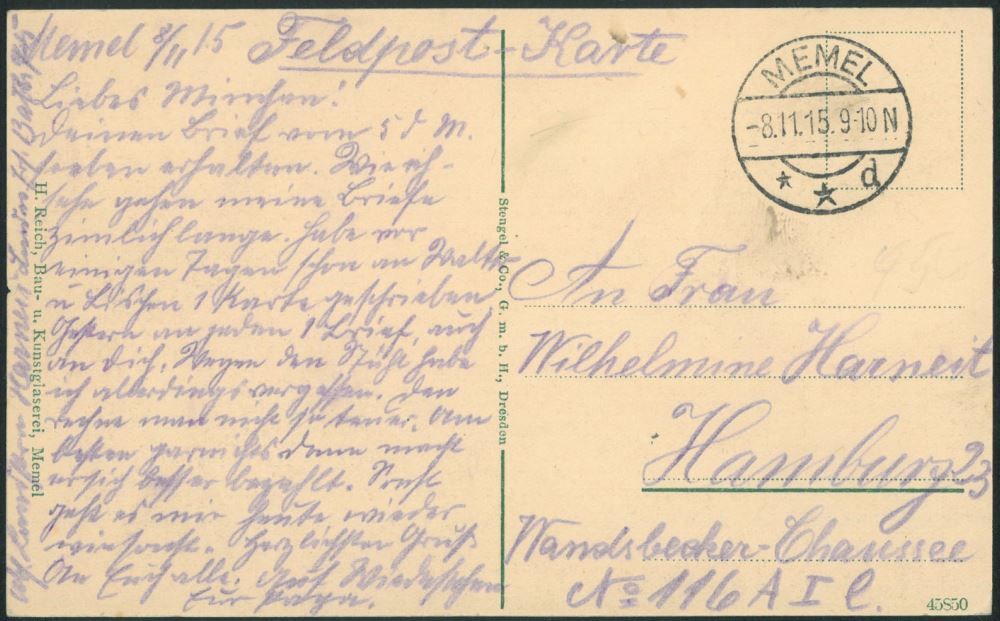 Memel 8/11 15 Feldpost-Karte
Liebes Minchen!
Deinen Brief vom 5 d M.
soeben erhalten. Wie ich
sehe gehen meine Briefe
ziemlich lange. Habe vor
einigen Tagen schon an Walter
u Lischen 1 Karte geschrieben
Gestern an jeden 1 Brief, auch
an Dich. Wegen den Stuhl habe
ich allerdings vergessen. Den
rechne man nicht so teuer. Am
besten garnichts dann macht
er sich besser bezahlt. Sonst
geht es mir heute wieder
Herzlichsten Gruß
An Euch alle. Auf Wiedersehen
Eur Papa.
H. Reich, Bau- u. Kunstglaserei, Memel
Stengel & Co., G. m. b. H., Dresden
MEMEL
-8.11.15.9-10N
d
An Frau
Wilhelmine Harneit
Hamburg 23
Wandsbecker-Chaussee
No 116 A I l.
45850